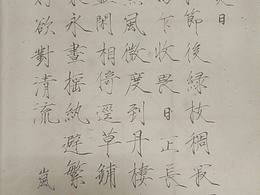 日
節後綠枝稠寂
乍收畏日正長
風微度到丹樓
閑相倚逕草鋪
永晝搖紈避繁
欲對清流
嵐